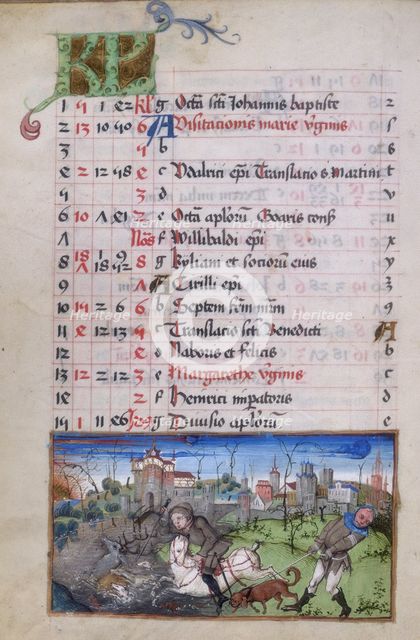 KL
1 9 1 22 kl g Octa scti Johannis baptiste z
2 13 10 20 6 A Visitacionis marie vginis s
3 9 b t
e 2 12 28 e c Vdalrici epi Translacio s martini v
9 3 d
6 10 Λ 21 2 e Octa aplorum Goaris conf u
Λ Nos f Willibaldi epi x
8 18 1 9 8 g Kyliani et sociorum eius y
9 Λ A Cirilli epi z
10 19 2 6 6 b Septem frm mrm 9
11 e 12 13 9 c Translatio scti Benedicti A
12 e d Naboris et felicis b
13 12 2 12 3 e Margarethe vginis c
1e 2 f Heinrici imperatoris d
19 1 11 26 Idus g Diuisio aplorum e
heritage
Heritage
Heritage